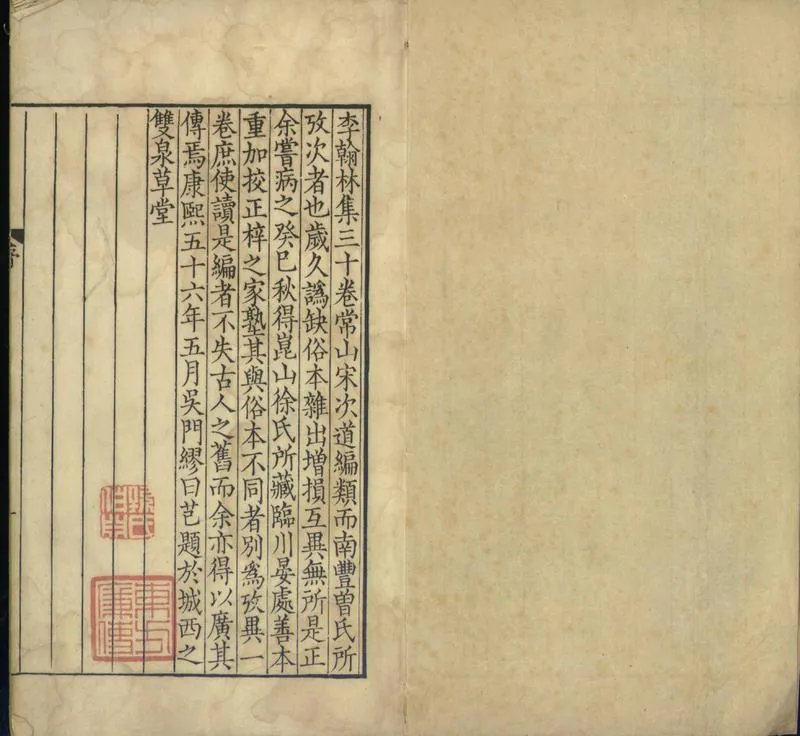 李翰林集三十卷常山宋次道編類而南豐曽氏所
攷次者也歲久譌缺俗本雜出增損互異無所是正
余嘗病之癸巳秋得崑山徐氏所藏臨川晏處善本
重加挍正梓之家塾其與俗本不同者別爲攷異一
卷庶使讀是編者不失古人之舊而余亦得以廣其
傳焉康熙五十六年五月吳門繆曰芑題於城西之
雙泉草堂